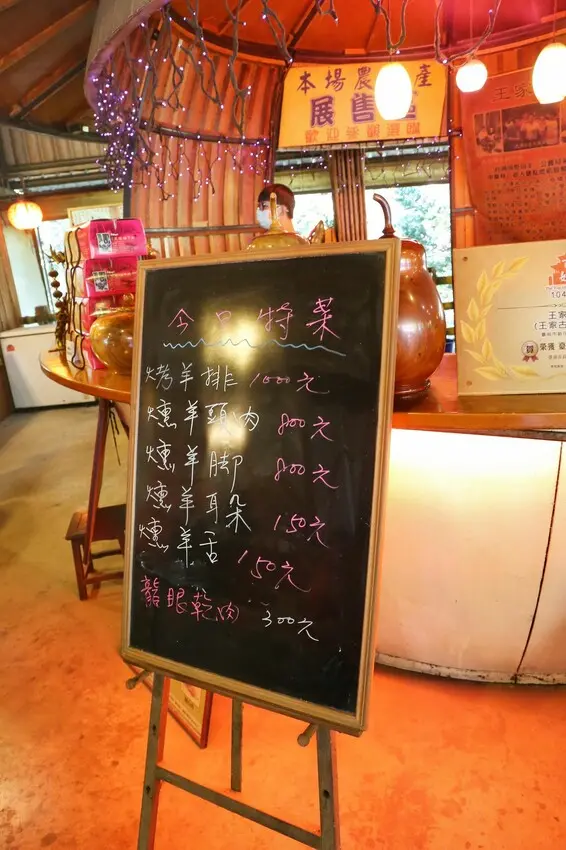 本場農產
展售區
歡迎參觀選購
王家
104
王家
(王家古
榮獲 臺
今日特菜
烤羊排 1000元
燻羊頭肉 800元
燻羊腳 800元
燻羊耳朵 150元
燻羊舌 150元
龍眼乾肉 300元